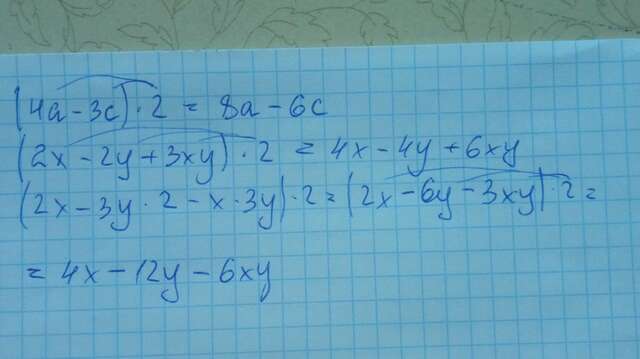 (4a - 3c) · 2 = 8a - 6c
(2x - 2y + 3xy) · 2 = 4x - 4y + 6xy
(2x - 3y · 2 - x · 3y) · 2 = (2x - 6y - 3xy) · 2 =
= 4x - 12y - 6xy